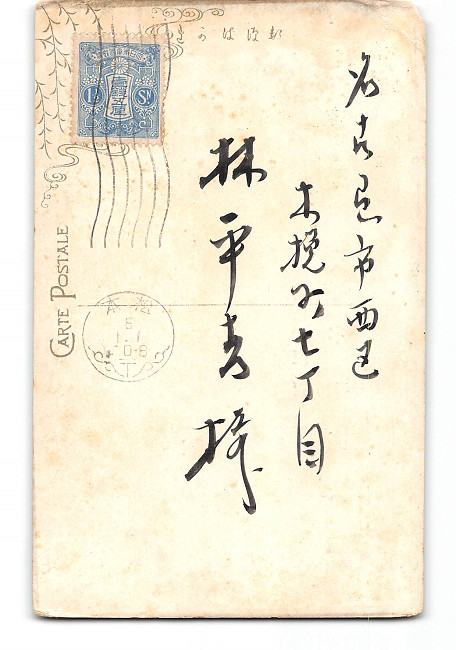 きかは便郵
名古屋市西区
木挽町七丁目
林平吉様
CARTE POSTALE
1½ Sn.
松本